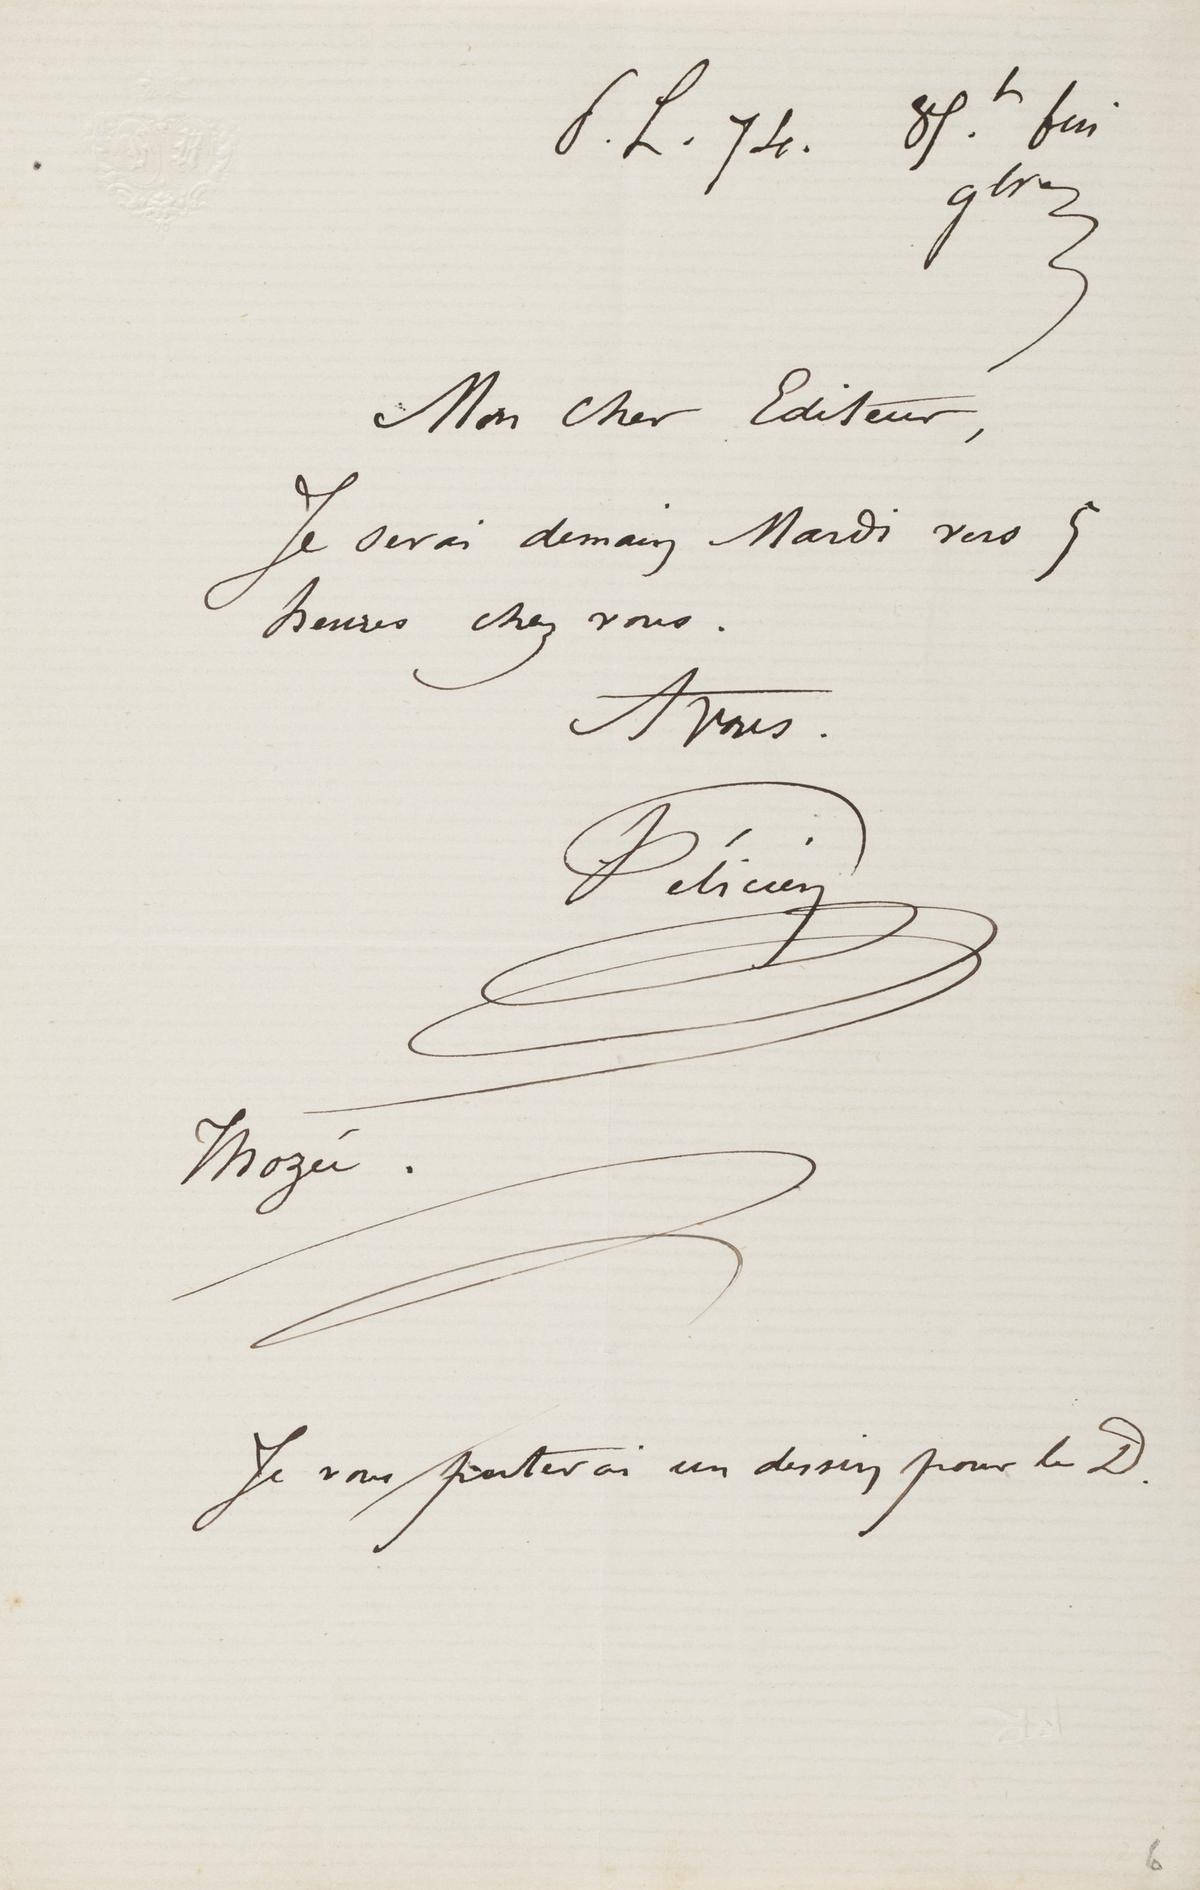 P. L. 74. fin
9bre
Mon cher Editeur,
Je serai demain Mardi vers 5
heures chez vous.
A Vous.
Félicien
Je vous porterai un dessin pour le D.
6